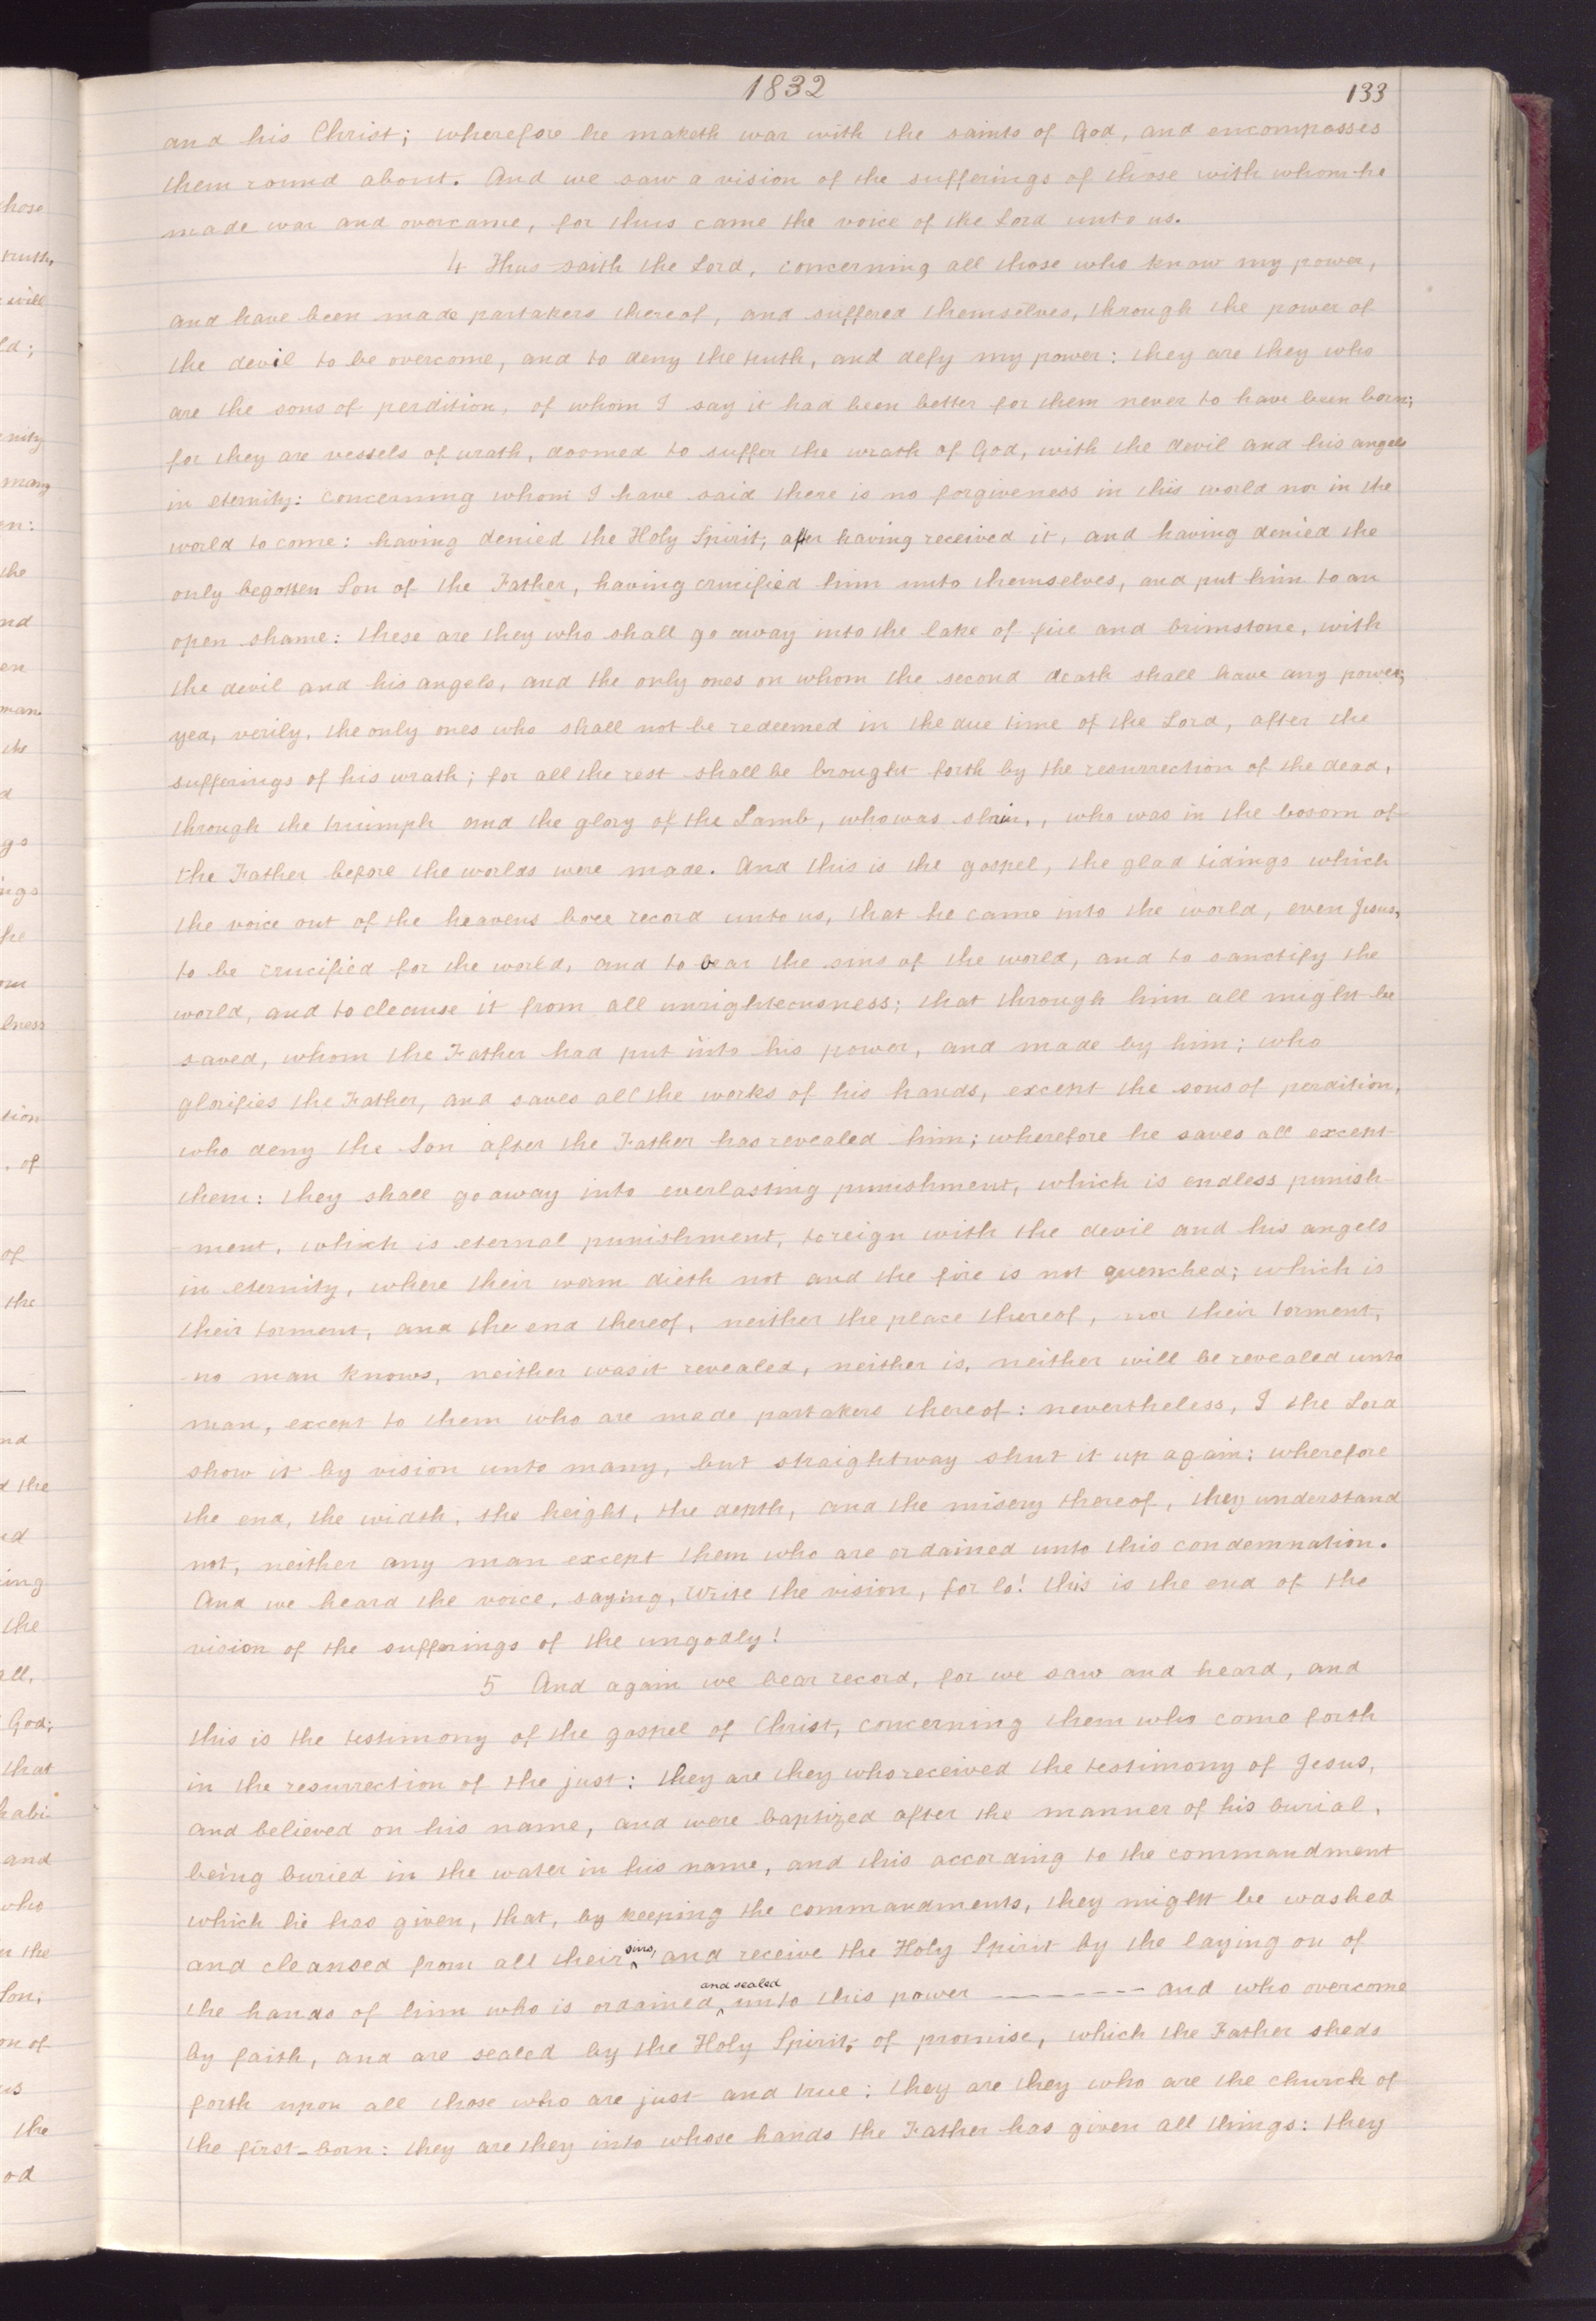 1832
133
and his Christ; wherefore he maketh war with the saints of God, and encompasses
them round about. And we saw a vision of the sufferings of those with whom he
made war and overcame, for thus came the voice of the Lord unto us.
4 Thus saith the Lord, concerning all those who know my power,
and have been made partakers thereof, and suffered themselves, through the power of
the devil to be overcome, and to deny the truth, and defy my power: they are they who
are the sons of perdition, of whom I say it had been better for them never to have been born;
for they are vessels of wrath, doomed to suffer the wrath of God, with the devil and his angels
in eternity: concerning whom I have said there is no forgiveness in this world nor in the
world to come: having denied the Holy Spirit, after having received it, and having denied the
only begotten Son of the Father, having crucified him unto themselves, and put him to an
open shame: these are they who shall go away into the lake of fire and brimstone, with
the devil and his angels, and the only ones on whom the second death shall have any power;
yea, verily, the only ones who shall not be redeemed in the due time of the Lord, after the
sufferings of his wrath; for all the rest shall be brought forth by the resurrection of the dead,
through the triumph and the glory of the Lamb, who was slain, who was in the bosom of
the Father before the worlds were made. And this is the gospel, the glad tidings which
the voice out of the heavens bore record unto us, that he came into the world, even Jesus,
to be crucified for the world, and to bear the sins of the world, and to sanctify the
world, and to cleanse it from all unrighteousness; that through him all might be
saved, whom the Father had put into his power, and made by him; who
glorifies the Father, and saves all the works of his hands, except the sons of perdition,
who deny the Son after the Father has revealed him; wherefore he saves all except
them: they shall go away into everlasting punishment, which is endless punish-
-ment, which is eternal punishment, to reign with the devil and his angels
in eternity, where their worm dieth not and the fire is not quenched; which is
their torment, and the end thereof, neither the place thereof, nor their torment,
no man knows, neither was it revealed, neither is, neither will be revealed unto
man, except to them who are made partakers thereof: nevertheless, I the Lord
show it by vision unto many, but straightway shut it up again; wherefore
the end, the width, the height, the depth, and the misery thereof, they understand
not, neither any man except them who are ordained unto this condemnation.
And we heard the voice, saying, Write the vision, for lo! this is the end of the
vision of the sufferings of the ungodly!
5 And again we bear record, for we saw and heard, and
this is the testimony of the gospel of Christ, concerning them who come forth
in the resurrection of the just: they are they who received the testimony of Jesus,
and believed on his name, and were baptized after the manner of his burial,
being buried in the water in his name, and this according to the commandment
which he has given, that, by keeping the commandments, they might be washed
and cleansed from all their sins, and receive the Holy Spirit by the laying on of
the hands of him who is ordained and sealed unto this power -------- and who overcome
by faith, and are sealed by the Holy Spirit, of promise, which the Father sheds
forth upon all those who are just and true: they are they who are the church of
the first-born: they are they into whose hands the Father has given all things: they